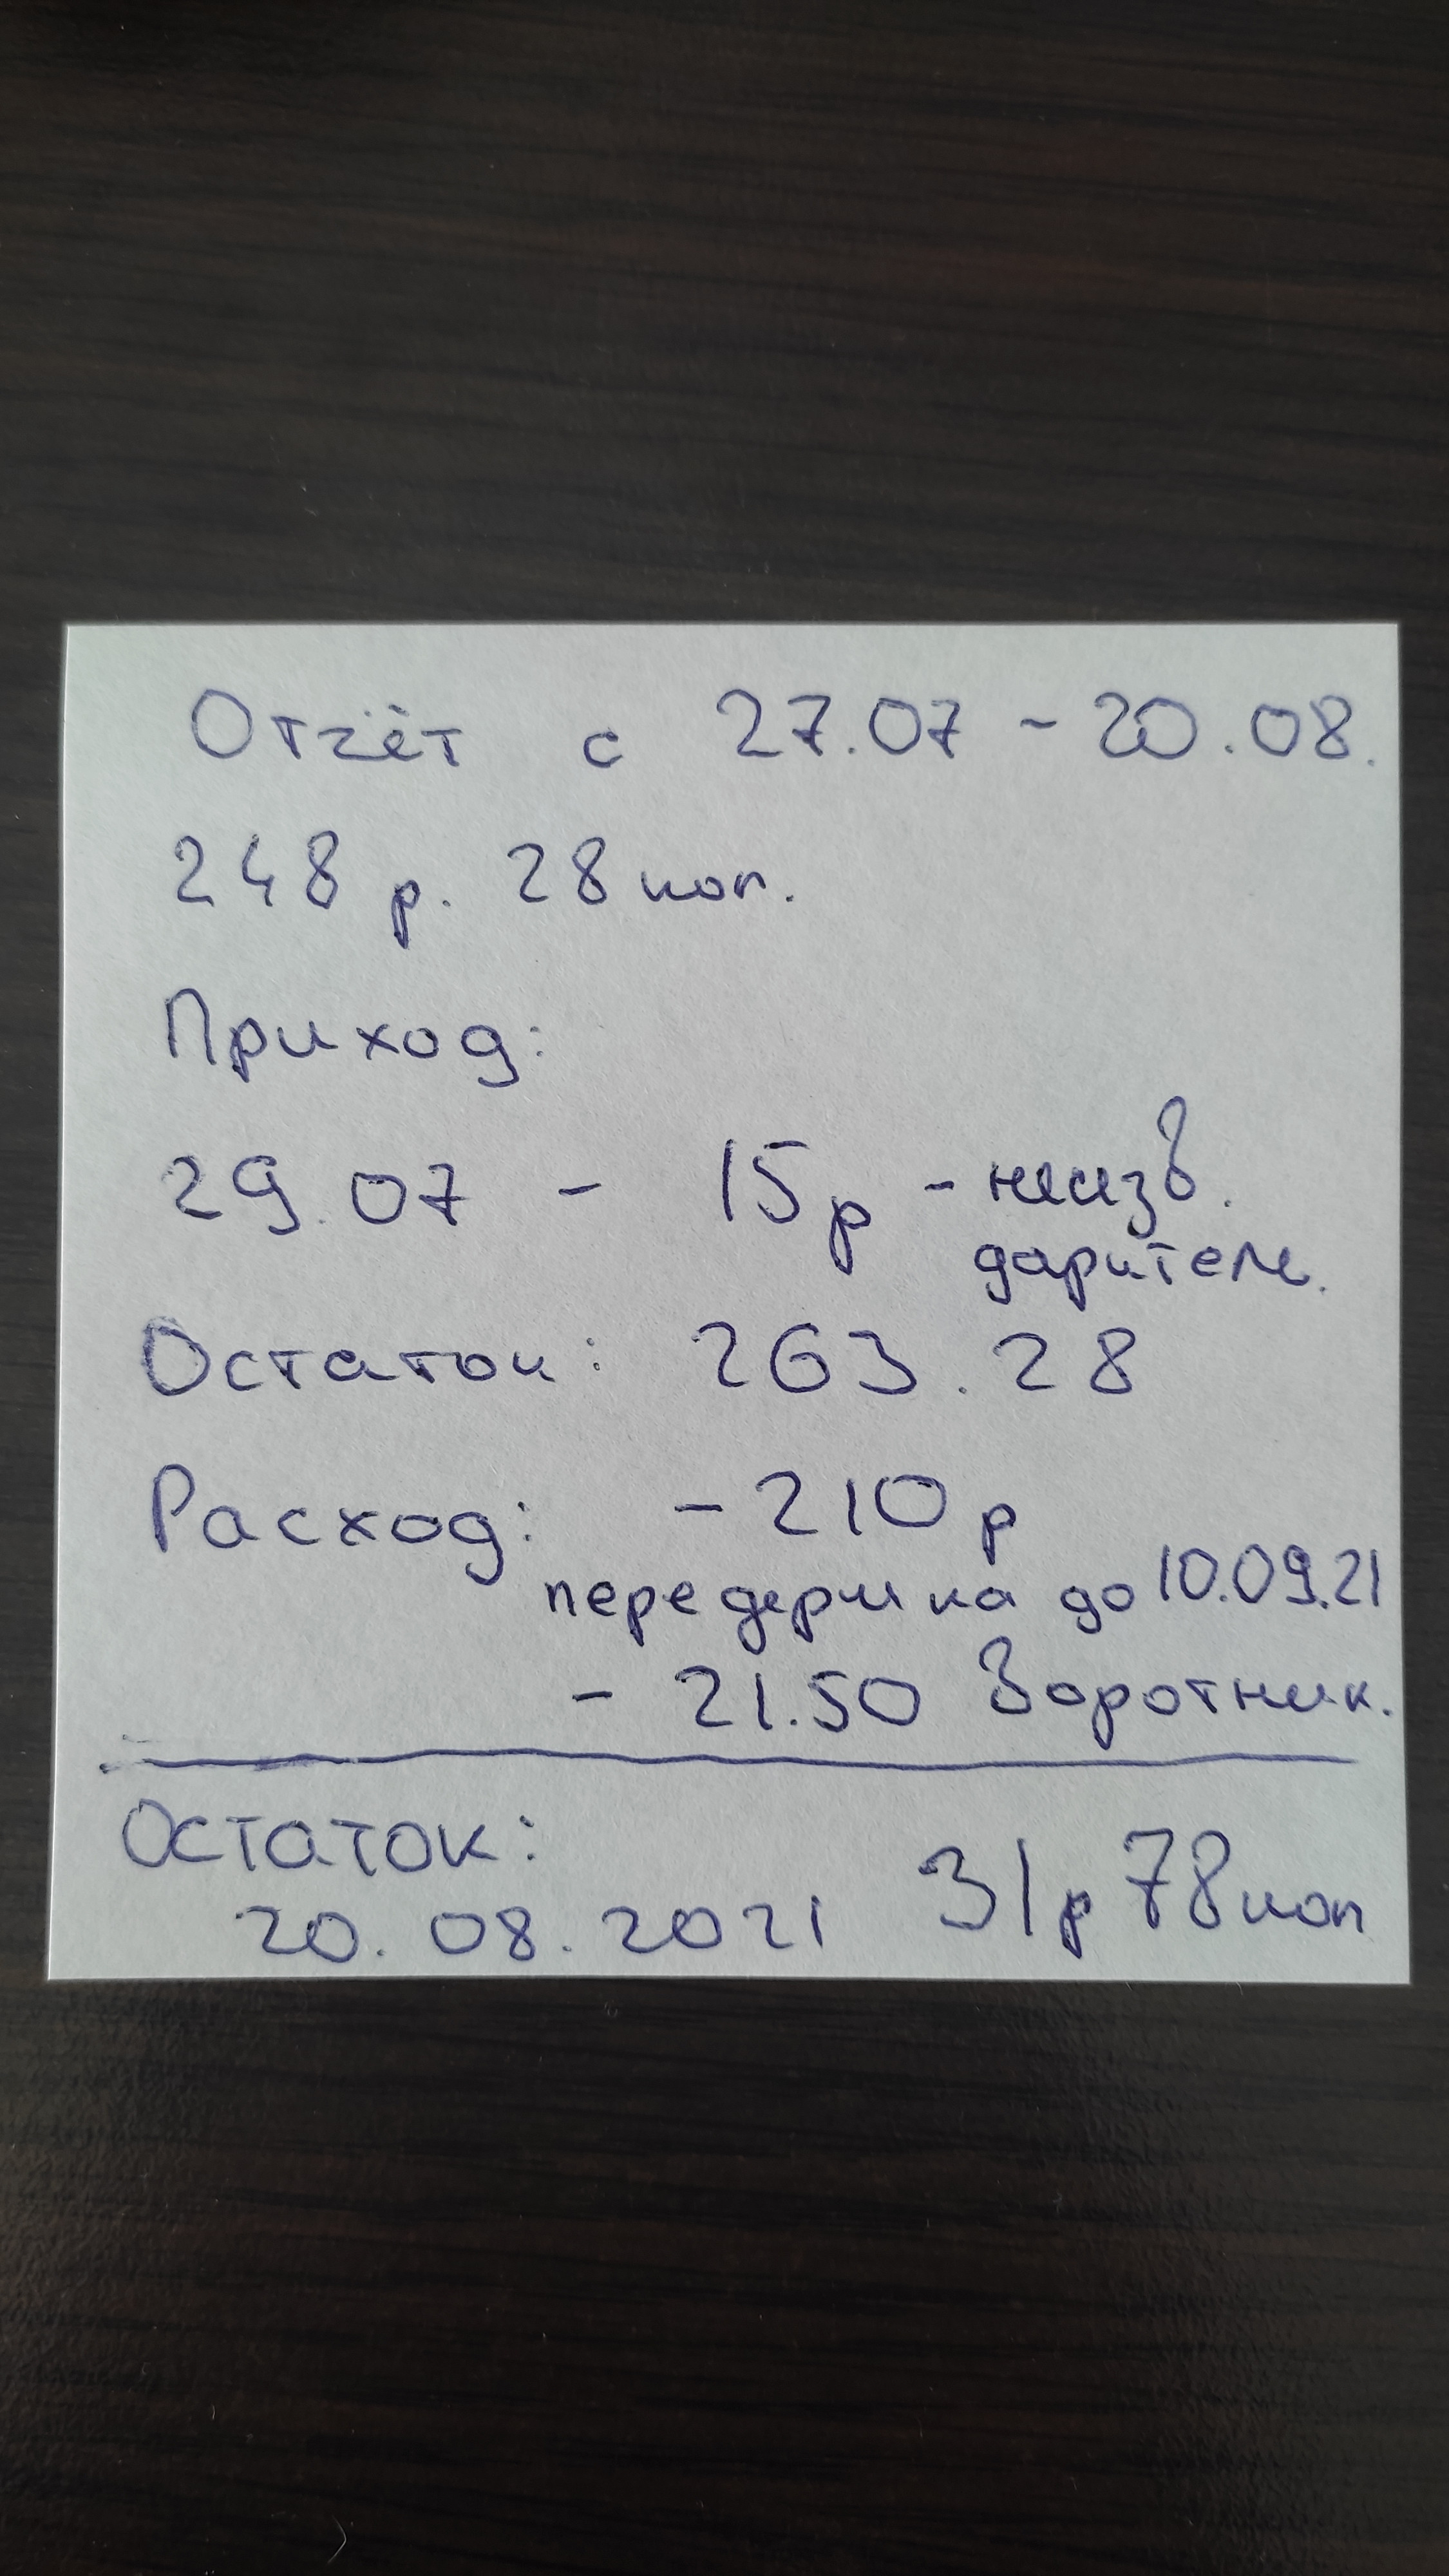 Отчёт с 27.07 - 20.08.
248 р. 28 коп.
Приход:
29.07 - 15р - неизв.
даритель.
Остаток: 263.28
Расход: - 210 р
передержка до 10.09.21
- 21.50 Воротник.
Остаток:
20.08.2021 31р 78коп